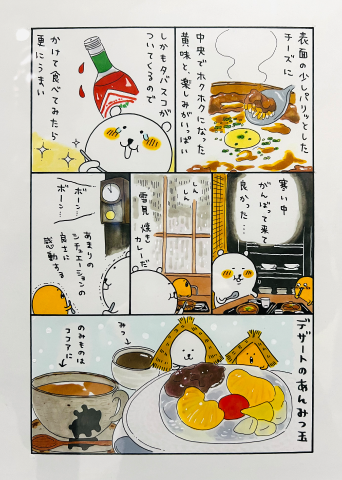 表面の少しパリッとした
チーズに
中央でホクホクになった
黄味と、楽しみがいっぱい
しかもタバスコが
ついてくるので
かけて食べてみたら
更にうまい
寒い中
がんばって来て
良かった…
しんしん
雪見 焼き
カレーだ
ボーン…
ボーン…
あまりの
シチュエーションの
良さに
感動する
デザートのあんみつ玉
みつ
のみものは
ココアに